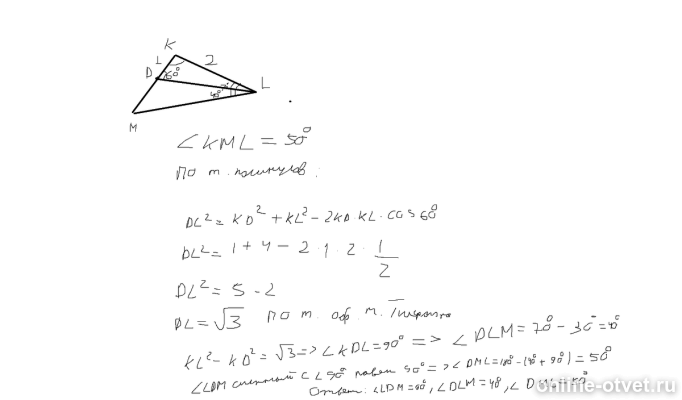 K
1
2
D
60°
L
40°
M
∠KML = 50°
По т. косинусов:
DL² = KD² + KL² - 2KD·KL·cos 60
DL² = 1 + 4 - 2·1·2·1/2
DL² = 5 - 2
DL = √3 По т. обр. т. Пифагора
KL² - KD² = √3 => ∠KDL = 90° => ∠DLM = 70° - 30° =
∠LDM смежный с ∠90° равен 90° => ∠DML = 180 - ( + 90°) = 50°
Ответ: ∠LDM = 90°, ∠DLM = 40, ∠
online-otvet.ru